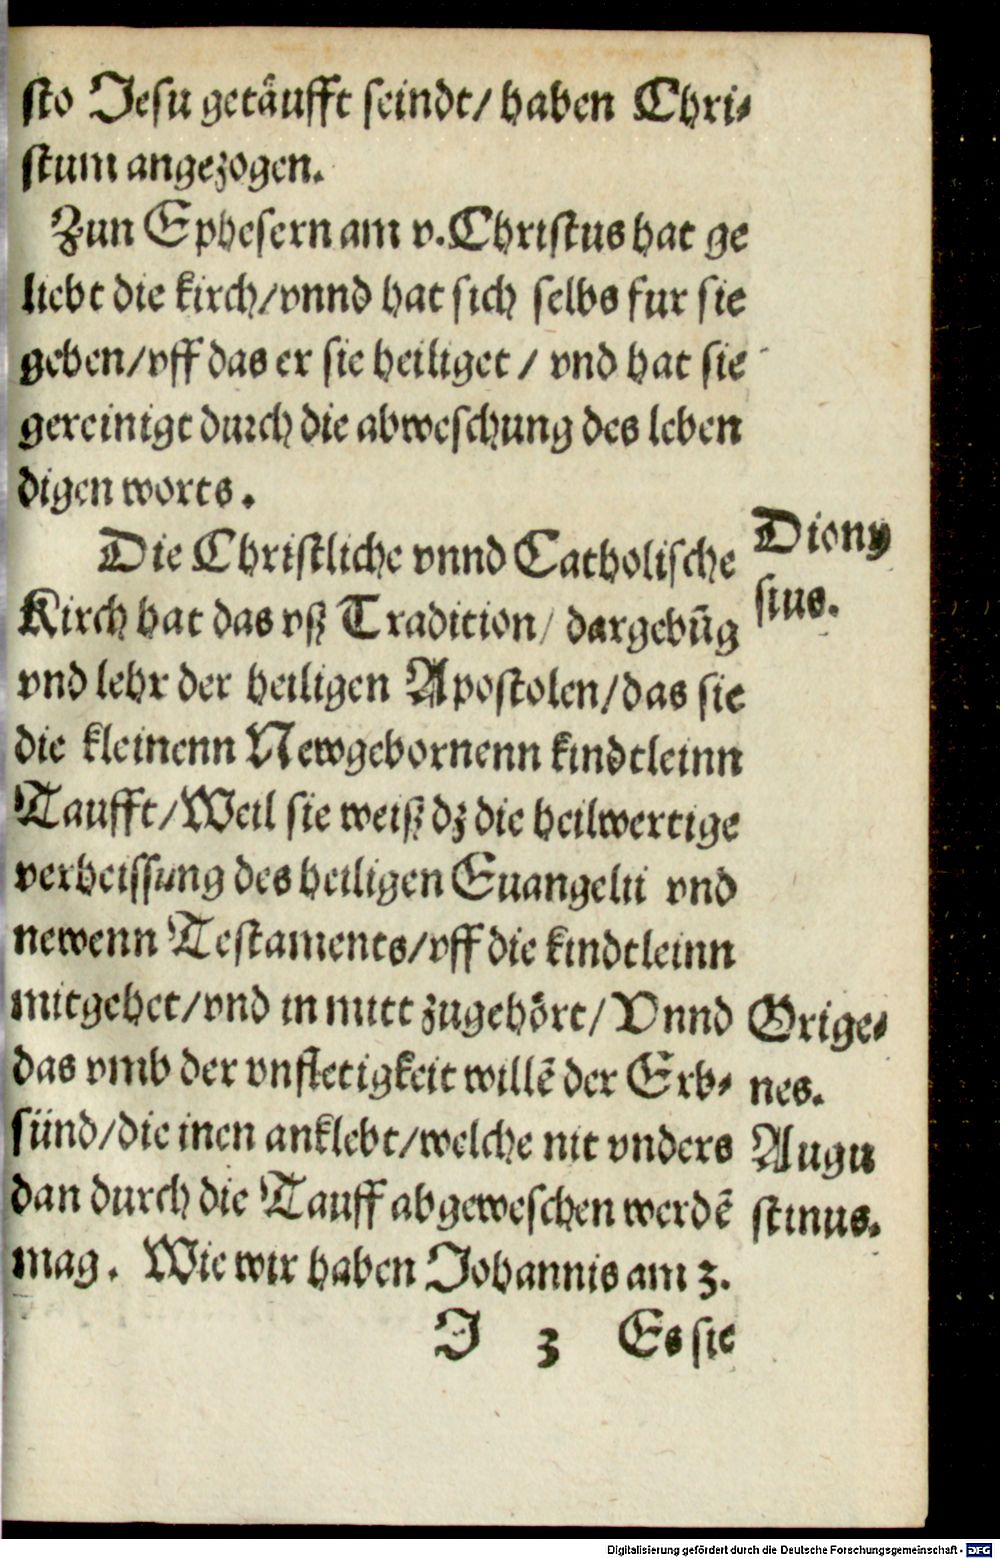 sto Jesu getäufft seindt/ haben Chri⸗
stum angezogen.
Zun Ephesern am v. Christus hat ge
liebt die kirch/vnnd hat sich selbs fur sie
geben/vff das er sie heiliget / vnd hat sie
gereinigt durch die abweschung des leben
digen worts.
Die Christliche vnnd Catholische
Kirch hat das vß Tradition/ dargebūg
vnd lehr der heiligen Apostolen/das sie
die kleinenn Newgebornenn kindtleinn
Taufft/Weil sie weiß dz die heilwertige
verheissung des heiligen Euangelii vnd
newenn Testaments/vff die kindtleinn
mitgehet/vnd in mitt zugehört/ Vnnd
das vmb der vnfletigkeit willē der Erb⸗
sünd/die inen anklebt/welche nit vnders
dan durch die Tauff abgeweschen werdē
mag. Wie wir haben Johannis am 3.
J 3 Es sie
Diony
sius.
Orige⸗
nes.
Augu
stinus.
Digitalisierung gefördert durch die Deutsche Forschungsgemeinschaft - DFG